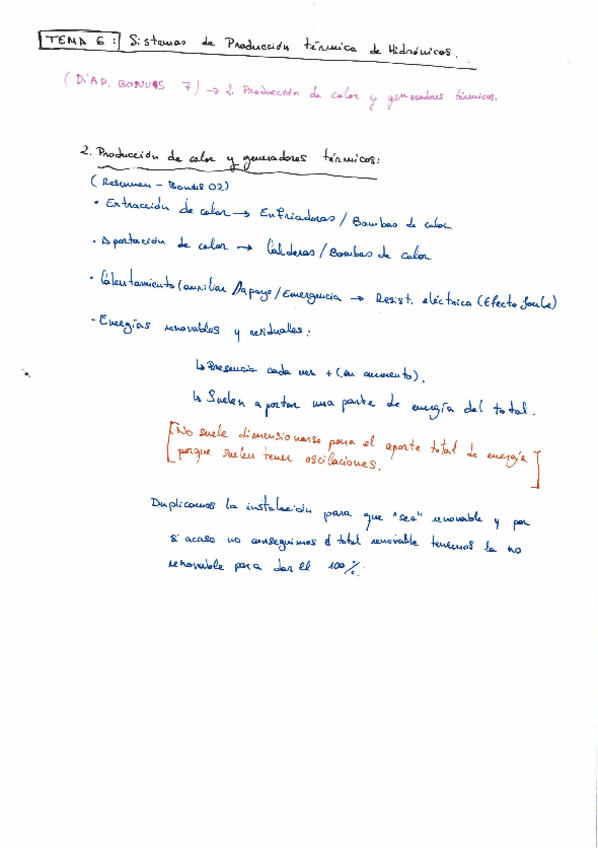 TEMA 6: Sistemas de Producción térmica de Hidrónicos.
(DiAP. BONUS 7) → 2. Producción de calor y generadores térmicos.
2. Producción de calor y generadores térmicos:
(Resumen - Bonus 02)
• Extracción de calor → Enfriadoras / Bombas de calor
• Aportación de calor → Calderas / Bombas de calor
• Calentamiento (auxiliar / Apoyo / Emergencia → Resist. eléctrica (Efecto Joule)
• Energías renovables y residuales:
↳ Presencia cada vez + (en aumento).
↳ Suelen aportar una parte de energía del total.
[No suele dimensionarse para el aporte total de energía
porque suelen tener oscilaciones.]
Duplicamos la instalación para que "sea" renovable y por
si acaso no conseguimos el total renovable tenemos la no
renovable para dar el 100%.